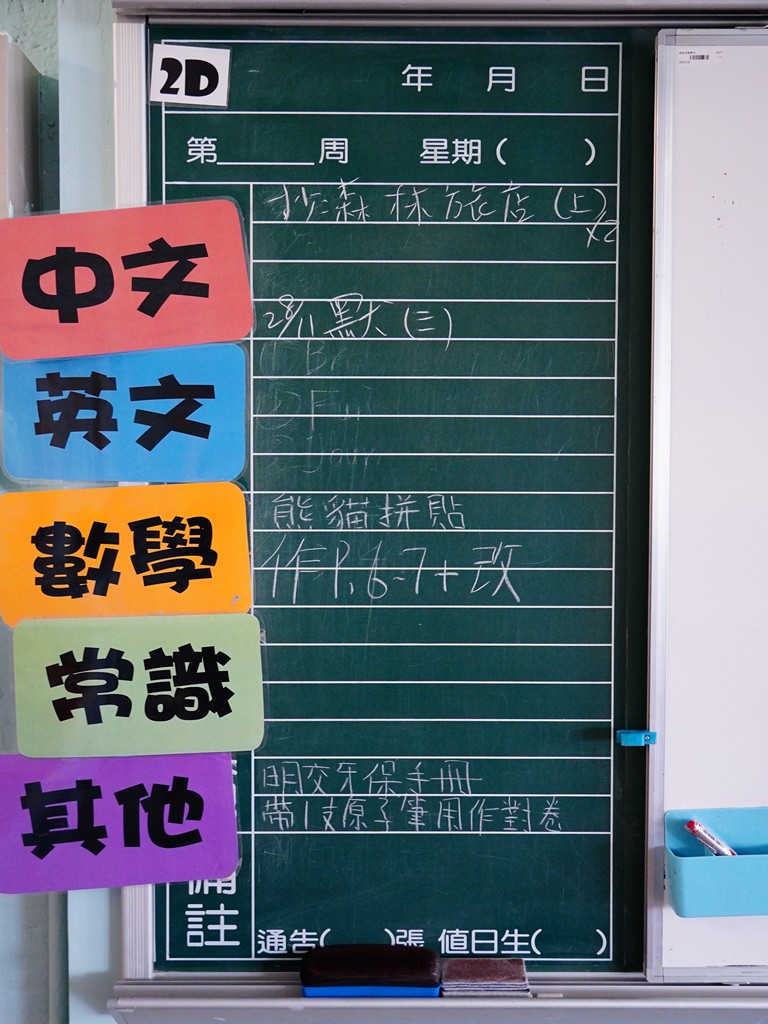 2D
年 月 日
第______周 星期( )
中文
抄森林旅店(上)
x2
28/11 默(三)
英文
數學
熊貓拼貼
作P.6-7+改
常識
其他
明交牙保手冊
帶1支原子筆用作對卷
備註
通告( )張 值日生( )